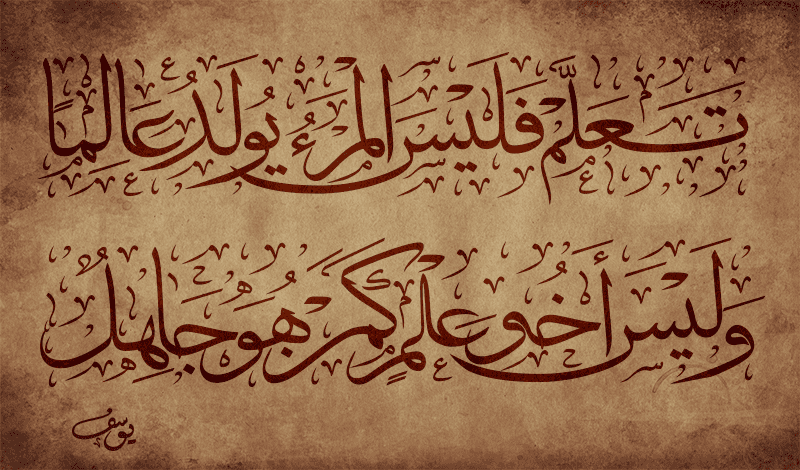 تَعَلَّمْ فَلَيْسَ الْمَرْءُ يُولَدُ عَالِمًا
وَلَيْسَ أَخُو عِلْمٍ كَمَنْ هُوَ جَاهِلُ
يوسف